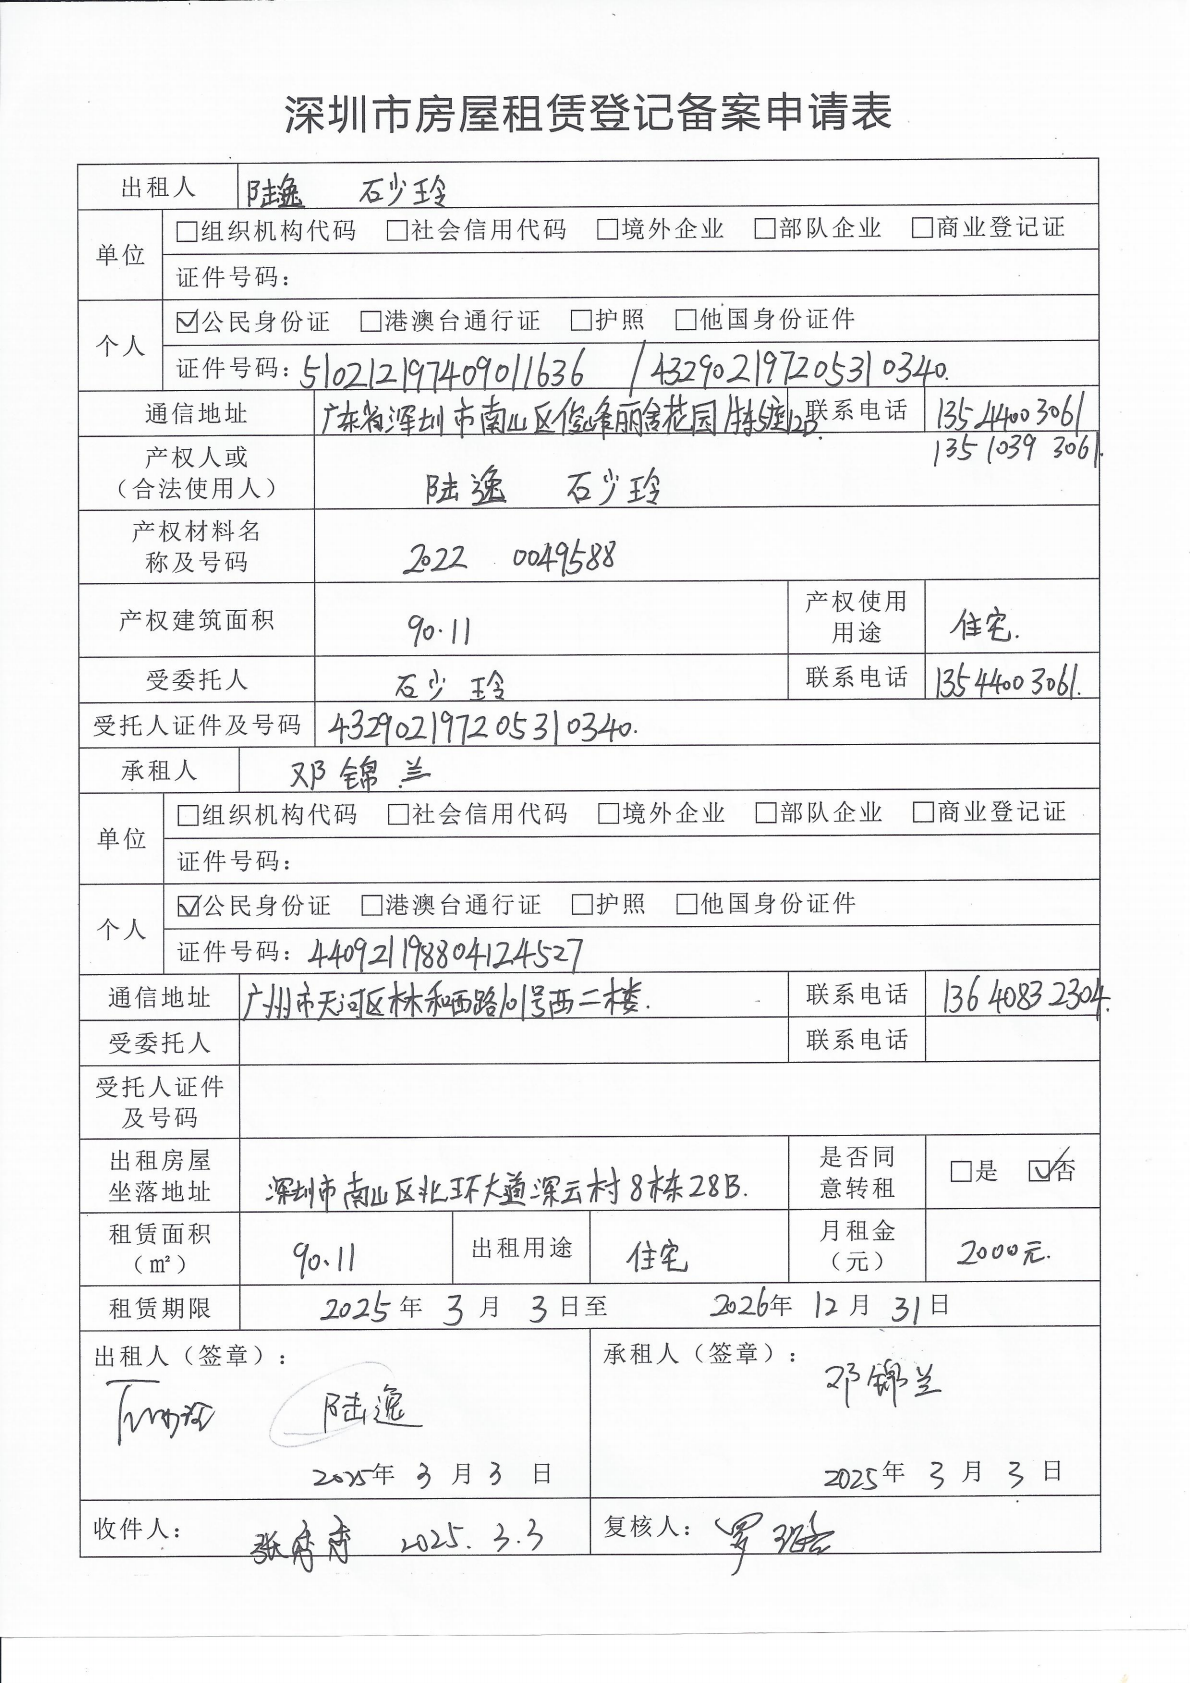 深圳市房屋租赁登记备案申请表
出租人 陆逸 石少玲
单位 □组织机构代码 □社会信用代码 □境外企业 □部队企业 □商业登记证
证件号码：
个人 ☑公民身份证 □港澳台通行证 □护照 □他国身份证件
证件号码：510212197409011636 / 432902197205310340.
通信地址 广东省深圳市南山区俊峰丽舍花园 栋 座12B. 联系电话 13544003061
13510393061.
产权人或
（合法使用人） 陆逸 石少玲
产权材料名
称及号码 2022 0049588
产权建筑面积 90.11 产权使用
用途 住宅.
受委托人 石少玲 联系电话 13544003061.
受托人证件及号码 432902197205310340.
承租人 邓锦兰
单位 □组织机构代码 □社会信用代码 □境外企业 □部队企业 □商业登记证
证件号码：
个人 ☑公民身份证 □港澳台通行证 □护照 □他国身份证件
证件号码：440921198804124527
通信地址 广州市天河区林和西路101号西二楼. 联系电话 13640832304.
受委托人 联系电话
受托人证件
及号码
出租房屋
坐落地址 深圳市南山区北环大道深云村8栋28B. 是否同
意转租 □是 ☑否
租赁面积
（㎡） 90.11 出租用途 住宅 月租金
（元） 2000元.
租赁期限 2025年3月3日至 2026年12月31日
出租人（签章）： 承租人（签章）：
陆逸 邓锦兰
2025年3月3日 2025年3月3日
收件人： 张 2025.3.3 复核人： 罗